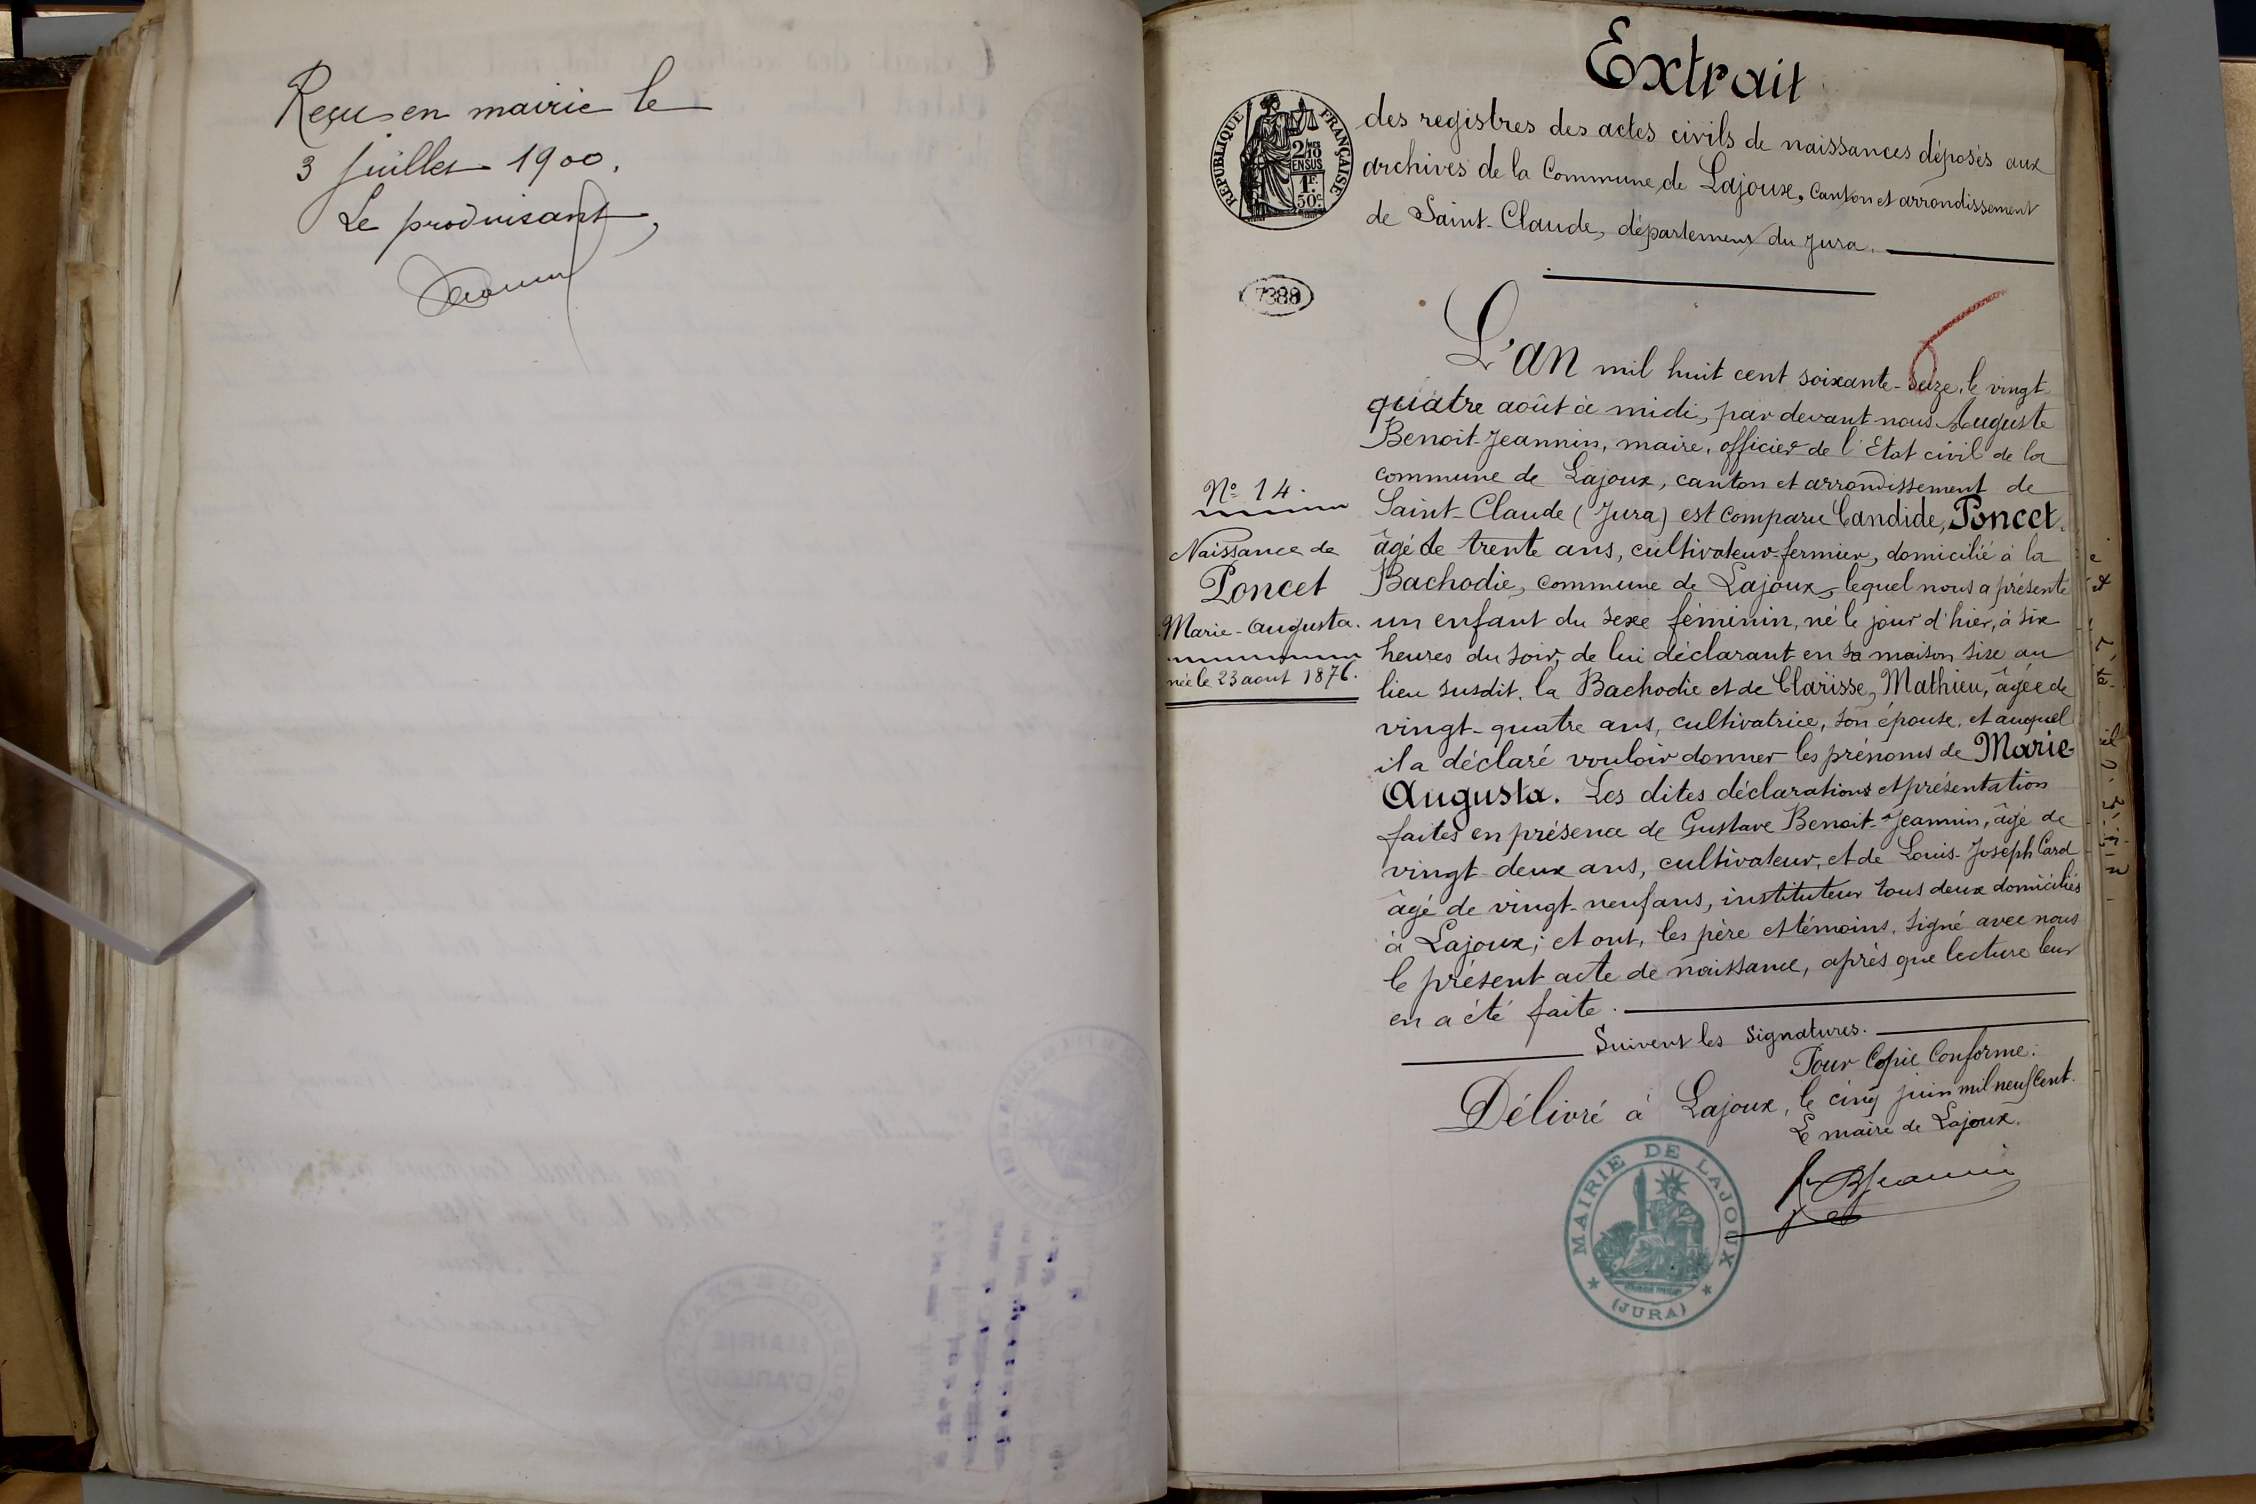 Reçu en mairie le
3 juillet 1900.
Le produisant,
Extrait
RÉPUBLIQUE FRANÇAISE
2/10 MES
EN SUS
1F.
50c.
des registres des actes civils de naissances déposés aux
archives de la Commune de Lajoux, Canton et arrondissement
de Saint-Claude, département du Jura.
7388
L'an mil huit cent soixante-seize, le vingt-
quatre août à midi, par devant nous Auguste
Benoit-Jeannin, maire, officier de l'Etat civil de la
commune de Lajoux, canton et arrondissement de
Saint-Claude (Jura) est comparu Candide, Poncet,
âgé de trente ans, cultivateur-fermier, domicilié à la
Bachodie, commune de Lajoux, lequel nous a présenté
un enfant du sexe féminin, né le jour d'hier, à six
heures du soir, de lui déclarant en sa maison sise au
lieu susdit, la Bachodie et de Clarisse, Mathieu, âgée de
vingt-quatre ans, cultivatrice, son épouse, et auquel
il a déclaré vouloir donner les prénoms de Marie-
Augusta. Les dites déclarations et présentation
faites en présence de Gustave Benoit-Jeannin, âgé de
vingt-deux ans, cultivateur, et de Louis-Joseph Card
âgé de vingt-neuf ans, instituteur tous deux domiciliés
à Lajoux; et ont, les père et témoins, signé avec nous
le présent acte de naissance, après que lecture leur
en a été faite.
Suivent les signatures.
Pour Copie Conforme:
Délivré à Lajoux, le cinq juin mil neuf cent.
Le maire de Lajoux.
N° 14.
Naissance de
Poncet
Marie-Augusta.
née le 23 août 1876.
MAIRIE DE LAJOUX
(JURA)